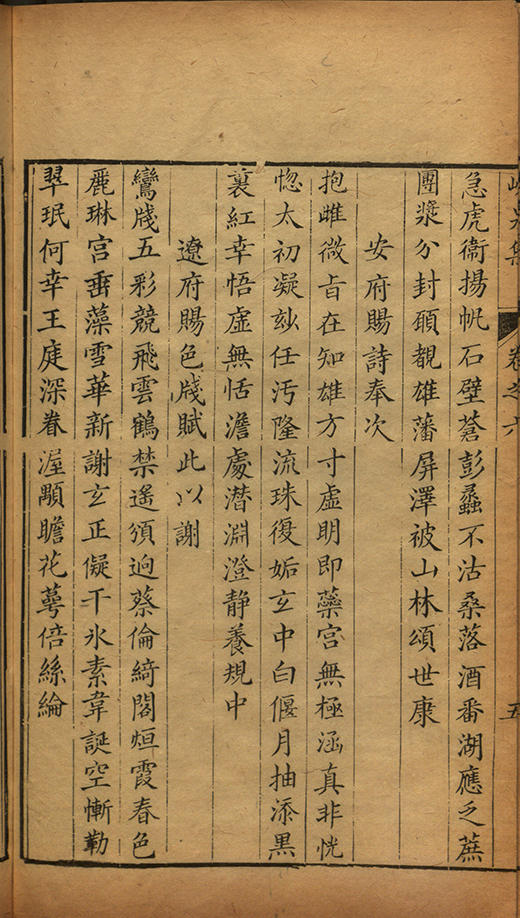 峴泉集 卷之六 五
急虎衞揚帆石壁蒼彭蠡不沽桑落酒番湖應乏蔗
團漿分封頋覩雄藩屏澤被山林頌世康
安府賜詩奉次
抱雌微旨在知雄方寸虛明即蘂宮無極涵真非恍
惚太初凝玅任汚隆流珠復姤玄中白偃月抽添黒
裏紅幸悟虛無恬澹處潛淵澄静養規中
遼府賜色牋賦此以謝
鸞牋五彩競飛雲鶴禁遙頒逈蔡倫綺閣烜霞春色
麗琳宮垂藻雪華新謝玄正儗干氷素韋誕空慚勒
翠珉何幸王庭深眷渥顒瞻花萼倍絲綸